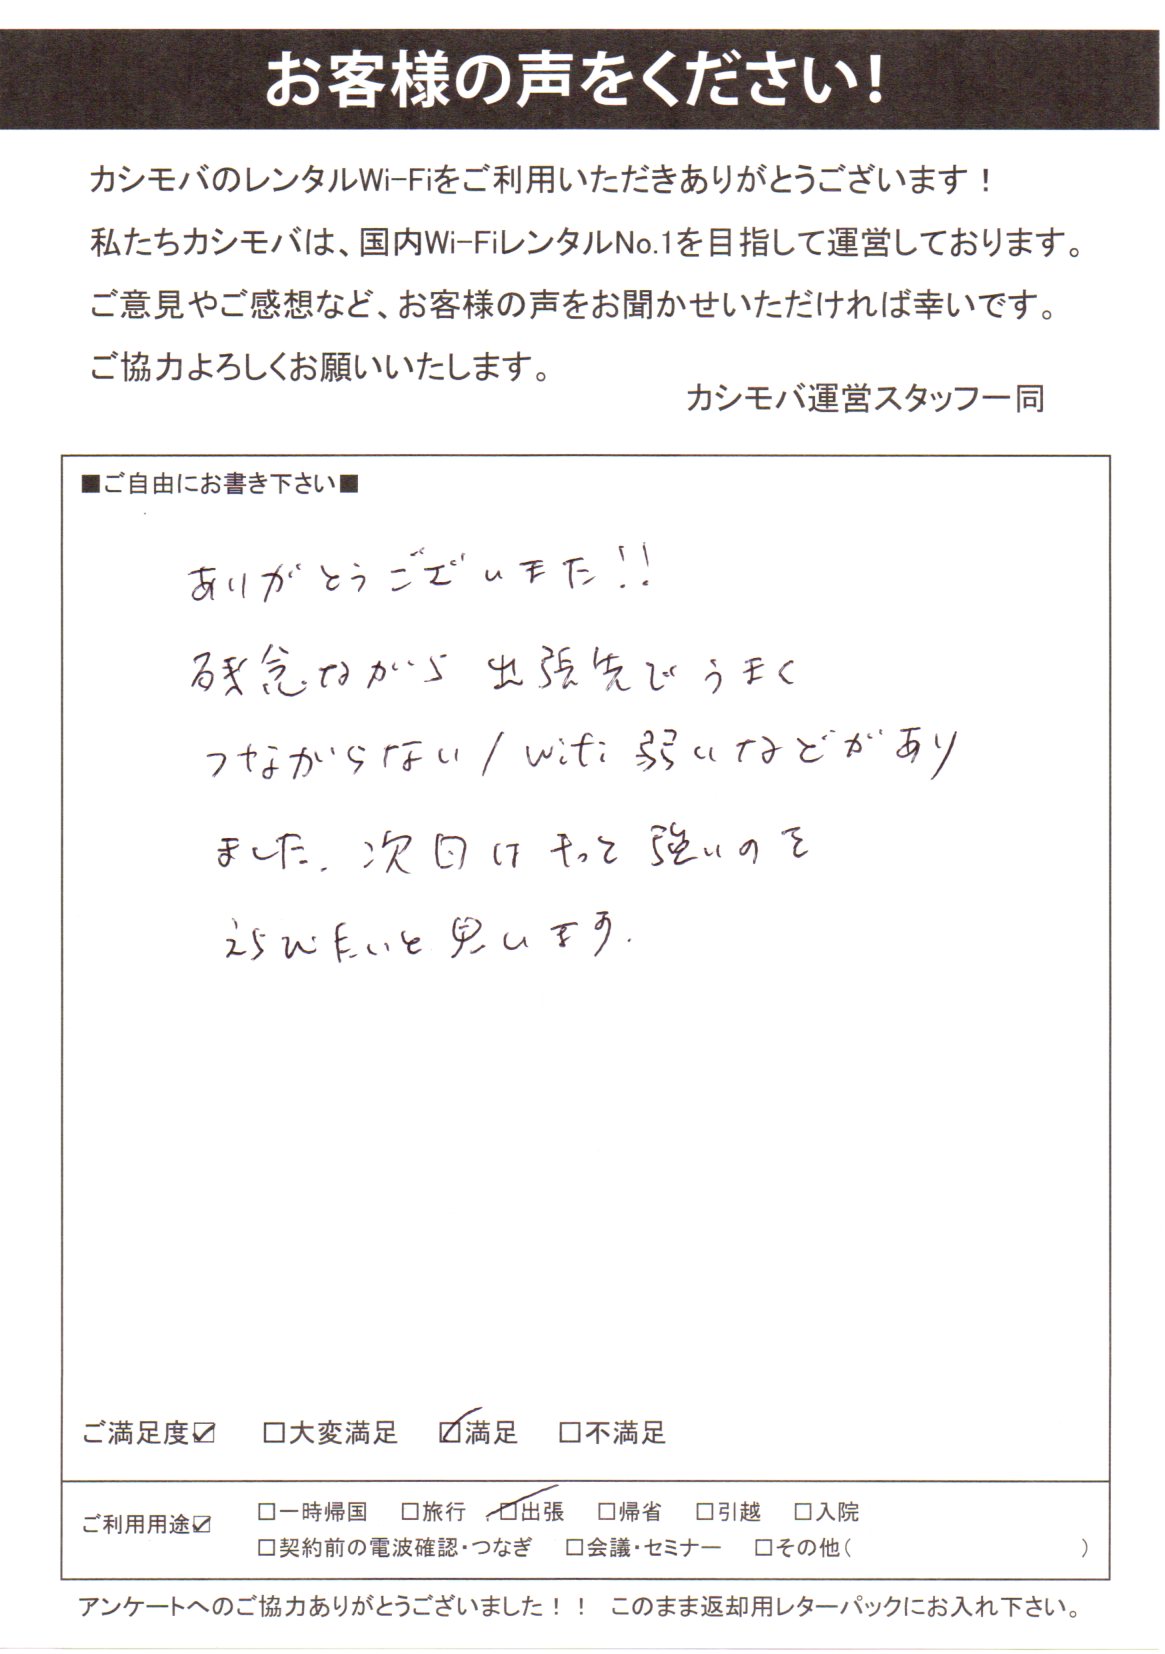 お客様の声をください!
カシモバのレンタルWi-Fiをご利用いただきありがとうございます！
私たちカシモバは、国内Wi-FiレンタルNo.1を目指して運営しております。
ご意見やご感想など、お客様の声をお聞かせいただければ幸いです。
ご協力よろしくお願いいたします。
カシモバ運営スタッフ一同
■ご自由にお書き下さい■
ありがとうございました!!
残念ながら出張先でうまく
つながらない/wifi弱いなどがあり
ました. 次回はもっと強いのを
えらびたいと思います.
ご満足度☑ □大変満足 ☑満足 □不満足
ご利用用途☑ □一時帰国 □旅行 ☑出張 □帰省 □引越 □入院
□契約前の電波確認・つなぎ □会議・セミナー □その他( )
アンケートへのご協力ありがとうございました！！ このまま返却用レターパックにお入れ下さい。